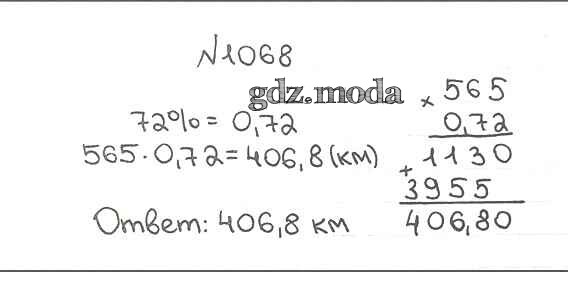 №1068
gdz.moda
72% = 0,72
565 · 0,72 = 406,8 (км)
Ответ: 406,8 км
× 565
0,72
+ 1130
3955
406,80